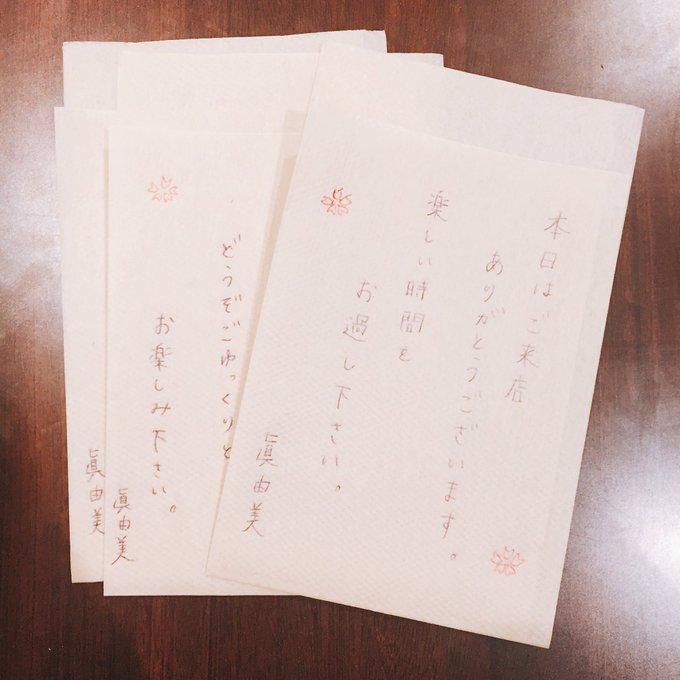 本日はご来店
ありがとうございます。
楽しい時間を
お過し下さい。
眞由美
どうぞごゆっくりと
お楽しみ下さい。
眞由美
眞由美